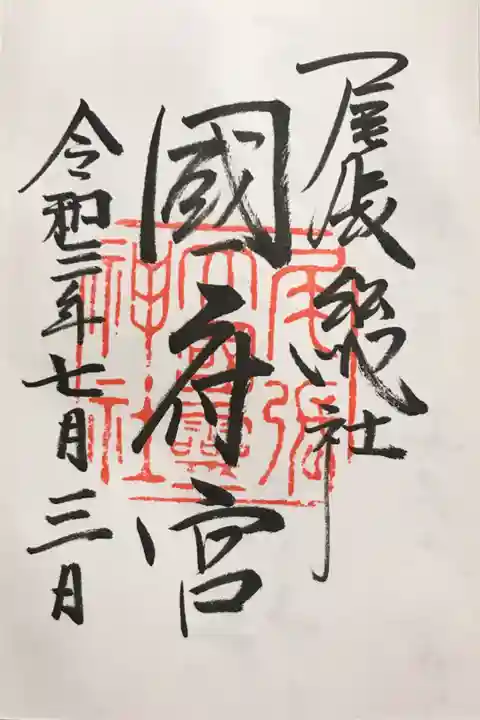 尾張總社
國府宮
令和三年七月三日
尾張
大國靈
神社